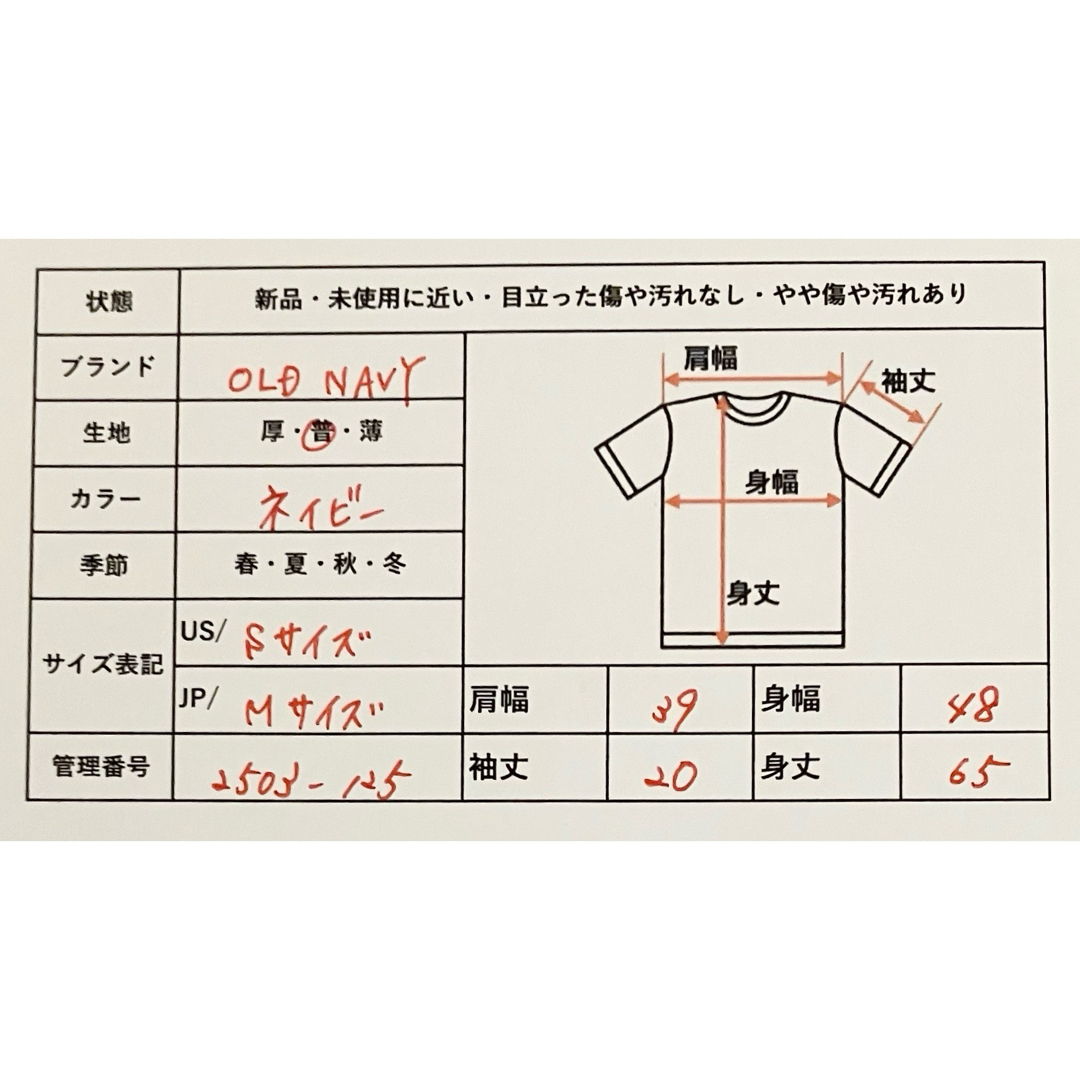 状態 新品・未使用に近い・目立った傷や汚れなし・やや傷や汚れあり
ブランド OLD NAVY
生地 厚・普・薄
カラー ネイビー
季節 春・夏・秋・冬
サイズ表記
US/ Sサイズ
JP/ Mサイズ
管理番号 2503-125
肩幅
袖丈
身幅
身丈
肩幅 39 身幅 48
袖丈 20 身丈 65